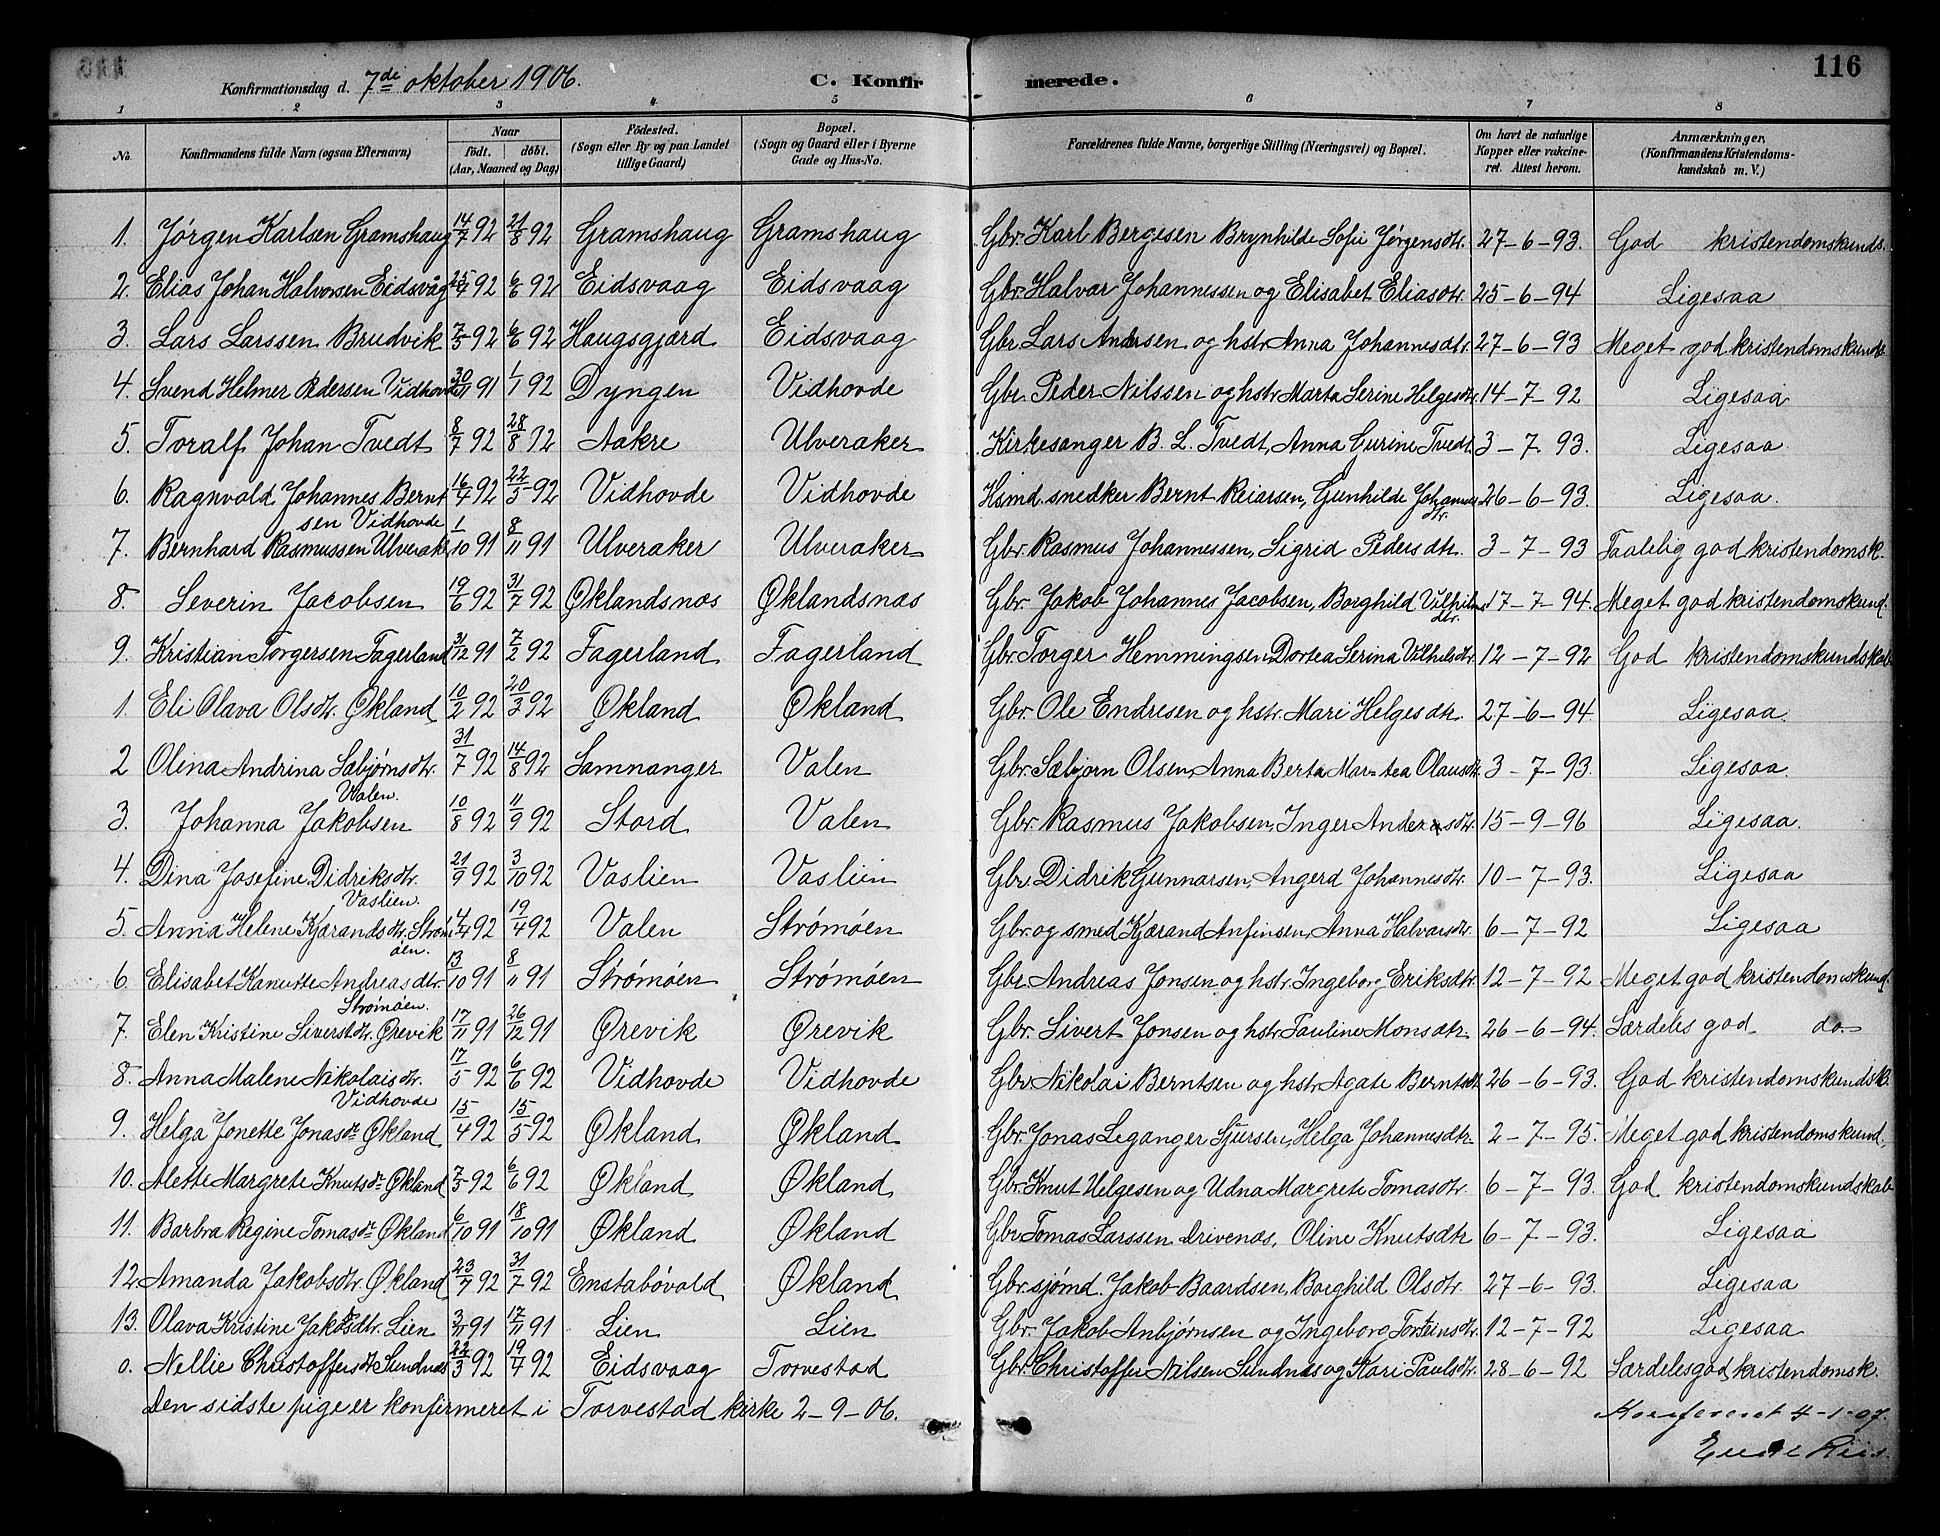 116
Konfirmationsdag d. 7de oktober 1906. C. Konfirmerede.
1 2 3 4 5 6 7 8
No. Konfirmandens fulde Navn (ogsaa Efternavn) Naar født. døbt. (Aar, Maaned og Dag) Födested. (Sogn eller By og paa Landet tillige Gaard) Bopæl. (Sogn og Gaard eller i Byerne Gade og Hus-No. Forældrenes fulde Navne, borgerlige Stilling (Næringsvei) og Bopæl. Om havt de naturlige Kopper eller vakcineret. Attest herom. Anmærkninger, (Konfirmandens Kristendomskundskab m. V.)
1. Jørgen Karlsen Gramshaug 14/7 92 21/8 92 Gramshaug Gramshaug Gbr. Karl Bergesen Brynhilde Sofie Jørgensdtr. 27-6-93. God kristendomskunds.
2. Elias Johan Halvorsen Eidsvåg 25/4 92 6/6 92 Eidsvaag Eidsvaag Gbr. Halvar Johannessen og Elisabet Eliasdtr. 25-6-94 Ligesaa
3. Lars Larssen Brudvik 7/5 92 6/6 92 Haugsgjærd Eidsvaag Gbr. Lars Andersen og hstr. Anna Johannesdtr. 27-6-93 Meget god kristendomskunds
4. Svend Helmer Pedersen Vidhovde 30/11 91 1/1 92 Dyngen Vidhovde Gbr. Peder Nilssen og hstr. Marta Serine Helgesdtr. 14-7-92 Ligesaa
5. Toralf Johan Tvedt 8/7 92 28/8 92 Aakre Ulveraker Kirkesanger B. L. Tvedt, Anna Gurine Tvedt 3-7-93. Ligesaa.
6. Ragnvald Johannes Bernt 16/4 92 22/5 92 Vidhovde Vidhovde Hsmd. snedker Bernt Reiarsen, Gunhilde Johannes dtr. 26-6-93. Ligesaa.
sen Vidhovde
7. Bernhard Rasmussen Ulveraker 1/10 91 8/11 91 Ulveraker Ulveraker Gbr. Rasmus Johannessen, Sigrid Pedersdtr. 3-7-93 Taalelig god kristendomsk.
8. Severin Jacobsen 19/6 92 31/7 92 Øklandsnæs Øklandsnæs Gbr. Jakob Johannes Jacobsen, Borghild Vilhelms dtr. 17-7-94. Meget god kristendomskund.
9. Kristian Torgersen Fagerland 31/12 91 7/2 92 Fagerland Fagerland Gbr. Torger Hemmingsen, Dortea Serina Vilhelsdtr. 12-7-92 God kristendomskundskab
1. Eli Olava Olsdtr. Økland 10/2 92 20/3 92 Økland Økland Gbr. Ole Endresen og hstr. Mari Helgesdtr. 27-6-94 Ligesaa.
2 Olina Andrina Sæbjørnsdtr. 31/7 92 14/8 92 Samnanger Valen Gbr. Sæbjørn Olsen, Anna Berta Martea Olausdtr. 3-7-93. Ligesaa.
Valen.
3. Johanna Jakobsen 10/8 92 11/9 92 Stord Valen Gbr. Rasmus Jakobsen, Inger Andersdtr. 15-9-96 Ligesaa.
4. Dina Josefine Didriksdtr. 21/9 92 3/10 92 Vaslien Vaslien Gbr. Didrik Gunnarsen, Angerd Johannesdtr. 10-7-93. Ligesaa
Vaslien.
5. Anna Helene Kjærandsdtr. Strøm 4/4 92 19/4 92 Valen Strømøen Gbr. og smed Kjærand Anfinsen, Anna Halvarsdtr. 6-7-92 Ligesaa
öen.
6 Elisabet Kanutte Andreasdtr. 13/10 91 8/11 91 Strømöen Strømöen Gbr. Andreas Jonsen og hstr. Ingeborg Eriksdtr. 12-7-92 Meget god kristendomskund.
Strømöen.
7. Elen Kristine Siverstdtr. Ørevik 17/11 91 26/12 91 Ørevik Ørevik Gbr. Sivert Jonsen og hstr. Pauline Monsdtr. 26-6-94. Særdeles god do-
8. Anna Malene Nikolaisdtr. 17/5 92 6/6 92 Vidhovde Vidhovde Gbr. Nikolai Berntsen og hstr. Agate Berntsdt. 26-6-93. God kristendomskundsk.
Vidhovde
9. Helga Jonette Jonasdr. Økland 15/4 92 15/5 92 Økland Økland Gbr. Jonas Leganger Sjursen, Helga Johannesdtr. 2-7-95. Meget god kristendomskund.
10. Alette Margrete Knutsdr. Økland 7/5 92 6/6 92 Økland Økland Gbr. Knut Helgesen og Udna Margrete Tomasdtr. 6-7-93. God kristendomskundskab
11. Barbra Regine Tomasdr. Økland 6/10 91 18/10 91 Økland Økland Gbr. Tomas Larssen Drivenæs, Oline Knutsdtr 6-7-93. Ligesaa
12. Amanda Jakobsdtr. Økland 23/7 92 31/7 92 Enstabövold Økland Gbr. sjømd. Jakob Baardsen, Borghild Olsdtr. 27-6-93. Ligesaa
13. Olava Kristine Jakobsdtr. Lien 3/11 91 17/11 91 Lien Lien Gbr. Jakob Anbjørnsen og Ingeborg Torsteinsdtr. 12-7-92 Ligesaa
o. Nellie Christoffersdtr. Sundnæs 22/3 92 19/4 92 Eidsvaag Torvestad Gbr. Christoffer Nilsen Sundnæs og Kari Paulsdtr. 28-6-92 Særdeles god kristendomsk.
Den sidste pige er konfirmeret i Torvestad kirke 2-9-06.
Konfereret 4-1-07.
Riis.